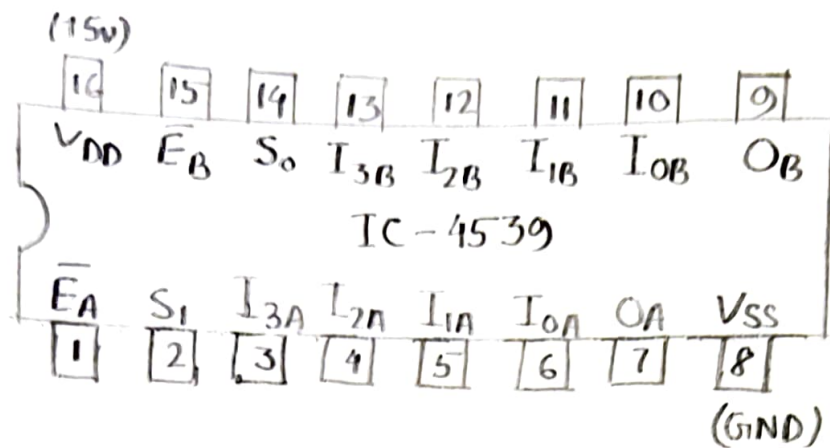 (15v)
16 15 14 13 12 11 10 9
VDD E̅B S0 I3B I2B I1B I0B OB
IC-4539
E̅A S1 I3A I2A I1A I0A OA VSS
1 2 3 4 5 6 7 8
(GND)